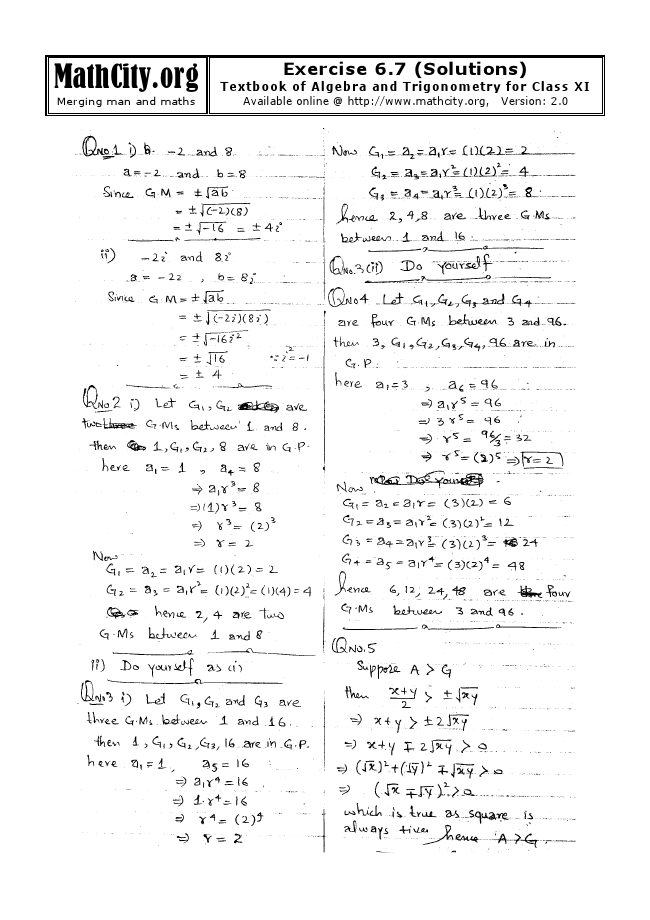 MathCity.org
Merging man and maths
Exercise 6.7 (Solutions)
Textbook of Algebra and Trigonometry for Class XI
Available online @ http://www.mathcity.org, Version: 2.0
QNO.1 i) -2 and 8
a = -2 and b = 8
Since G.M = ±√ab
= ±√(-2)(8)
= ±√-16 = ±4i
ii) -2i and 8i
a = -2i , b = 8i
Since G.M = ±√ab
= ±√(-2i)(8i)
= ±√-16i²
= ±√16 ∵ i² = -1
= ± 4
QNO2 i) Let G₁, G₂ are
two G.Ms between 1 and 8.
then 1, G₁, G₂, 8 are in G.P.
here a₁ = 1 , a₄ = 8
⇒ a₁r³ = 8
⇒ (1)r³ = 8
⇒ r³ = (2)³
⇒ r = 2
Now
G₁ = a₂ = a₁r = (1)(2) = 2
G₂ = a₃ = a₁r² = (1)(2)² = (1)(4) = 4
hence 2, 4 are two
G.Ms between 1 and 8
ii) Do yourself as (i)
QNO3 i) Let G₁, G₂ and G₃ are
three G.Ms between 1 and 16.
then 1, G₁, G₂, G₃, 16 are in G.P.
here a₁ = 1, a₅ = 16
⇒ a₁r⁴ = 16
⇒ 1.r⁴ = 16
⇒ r⁴ = (2)⁴
⇒ r = 2
Now G₁ = a₂ = a₁r = (1)(2) = 2
G₂ = a₃ = a₁r² = (1)(2)² = 4
G₃ = a₄ = a₁r³ = (1)(2)³ = 8
hence 2, 4, 8 are three G.Ms
between 1 and 16.
QNO.3 (ii) Do yourself
QNO4 Let G₁, G₂, G₃ and G₄
are four G.Ms between 3 and 96.
then 3, G₁, G₂, G₃, G₄, 96 are in
G.P.
here a₁ = 3 , a₆ = 96
⇒ a₁r⁵ = 96
⇒ 3r⁵ = 96
⇒ r⁵ = 96/3 = 32
⇒ r⁵ = (2)⁵ ⇒ r = 2
Now
G₁ = a₂ = a₁r = (3)(2) = 6
G₂ = a₃ = a₁r² = (3)(2)² = 12
G₃ = a₄ = a₁r³ = (3)(2)³ = 24
G₄ = a₅ = a₁r⁴ = (3)(2)⁴ = 48
hence 6, 12, 24, 48 are four
G.Ms between 3 and 96.
QNO.5
Suppose A > G
then x+y/2 > ±√xy
⇒ x+y > ±2√xy
⇒ x+y ∓ 2√xy > 0
⇒ (√x)² + (√y)² ∓ √xy > 0
⇒ (√x ∓ √y)² > 0
which is true as square is
always +ive, hence A > G.